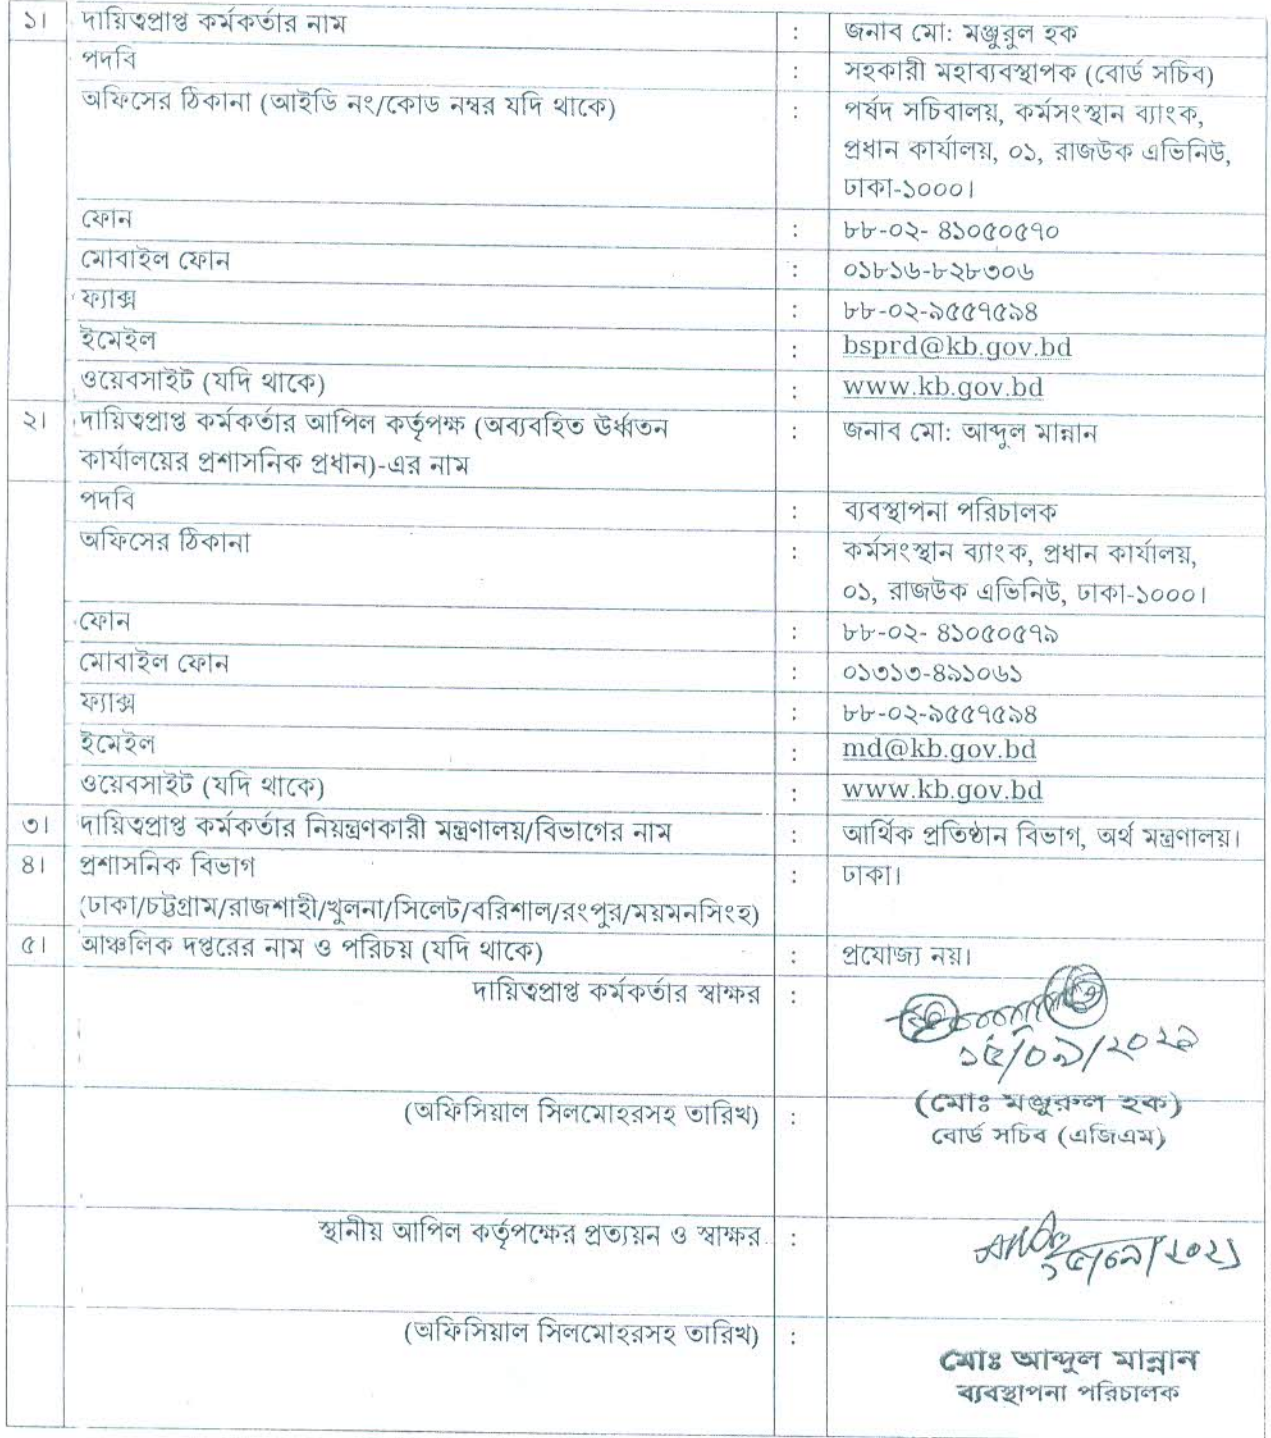 ১। দায়িত্বপ্রাপ্ত কর্মকর্তার নাম : জনাব মো: মঞ্জুরুল হক
পদবি : সহকারী মহাব্যবস্থাপক (বোর্ড সচিব)
অফিসের ঠিকানা (আইডি নং/কোড নম্বর যদি থাকে) : পর্ষদ সচিবালয়, কর্মসংস্থান ব্যাংক,
প্রধান কার্যালয়, ০১, রাজউক এভিনিউ,
ঢাকা-১০০০।
ফোন : ৮৮-০২- ৪১০৫০৫৭০
মোবাইল ফোন : ০১৮১৬-৮২৮৩০৬
ফ্যাক্স : ৮৮-০২-৯৫৫৭৫৯৪
ইমেইল : bsprd@kb.gov.bd
ওয়েবসাইট (যদি থাকে) : www.kb.gov.bd
২। দায়িত্বপ্রাপ্ত কর্মকর্তার আপিল কর্তৃপক্ষ (অব্যবহিত ঊর্ধ্বতন : জনাব মো: আব্দুল মান্নান
কার্যালয়ের প্রশাসনিক প্রধান)-এর নাম
পদবি : ব্যবস্থাপনা পরিচালক
অফিসের ঠিকানা : কর্মসংস্থান ব্যাংক, প্রধান কার্যালয়,
০১, রাজউক এভিনিউ, ঢাকা-১০০০।
ফোন : ৮৮-০২- ৪১০৫০৫৭৯
মোবাইল ফোন : ০১৩১৩-৪৯১০৬১
ফ্যাক্স : ৮৮-০২-৯৫৫৭৫৯৪
ইমেইল : md@kb.gov.bd
ওয়েবসাইট (যদি থাকে) : www.kb.gov.bd
৩। দায়িত্বপ্রাপ্ত কর্মকর্তার নিয়ন্ত্রণকারী মন্ত্রণালয়/বিভাগের নাম : আর্থিক প্রতিষ্ঠান বিভাগ, অর্থ মন্ত্রণালয়।
৪। প্রশাসনিক বিভাগ : ঢাকা।
(ঢাকা/চট্টগ্রাম/রাজশাহী/খুলনা/সিলেট/বরিশাল/রংপুর/ময়মনসিংহ)
৫। আঞ্চলিক দপ্তরের নাম ও পরিচয় (যদি থাকে) : প্রযোজ্য নয়।
দায়িত্বপ্রাপ্ত কর্মকর্তার স্বাক্ষর :
১৫/০৯/২০২১
(অফিসিয়াল সিলমোহরসহ তারিখ) : (মোঃ মঞ্জুরুল হক)
বোর্ড সচিব (এজিএম)
স্থানীয় আপিল কর্তৃপক্ষের প্রত্যয়ন ও স্বাক্ষর :
১৫/০৯/২০২১
(অফিসিয়াল সিলমোহরসহ তারিখ) :
মোঃ আব্দুল মান্নান
ব্যবস্থাপনা পরিচালক